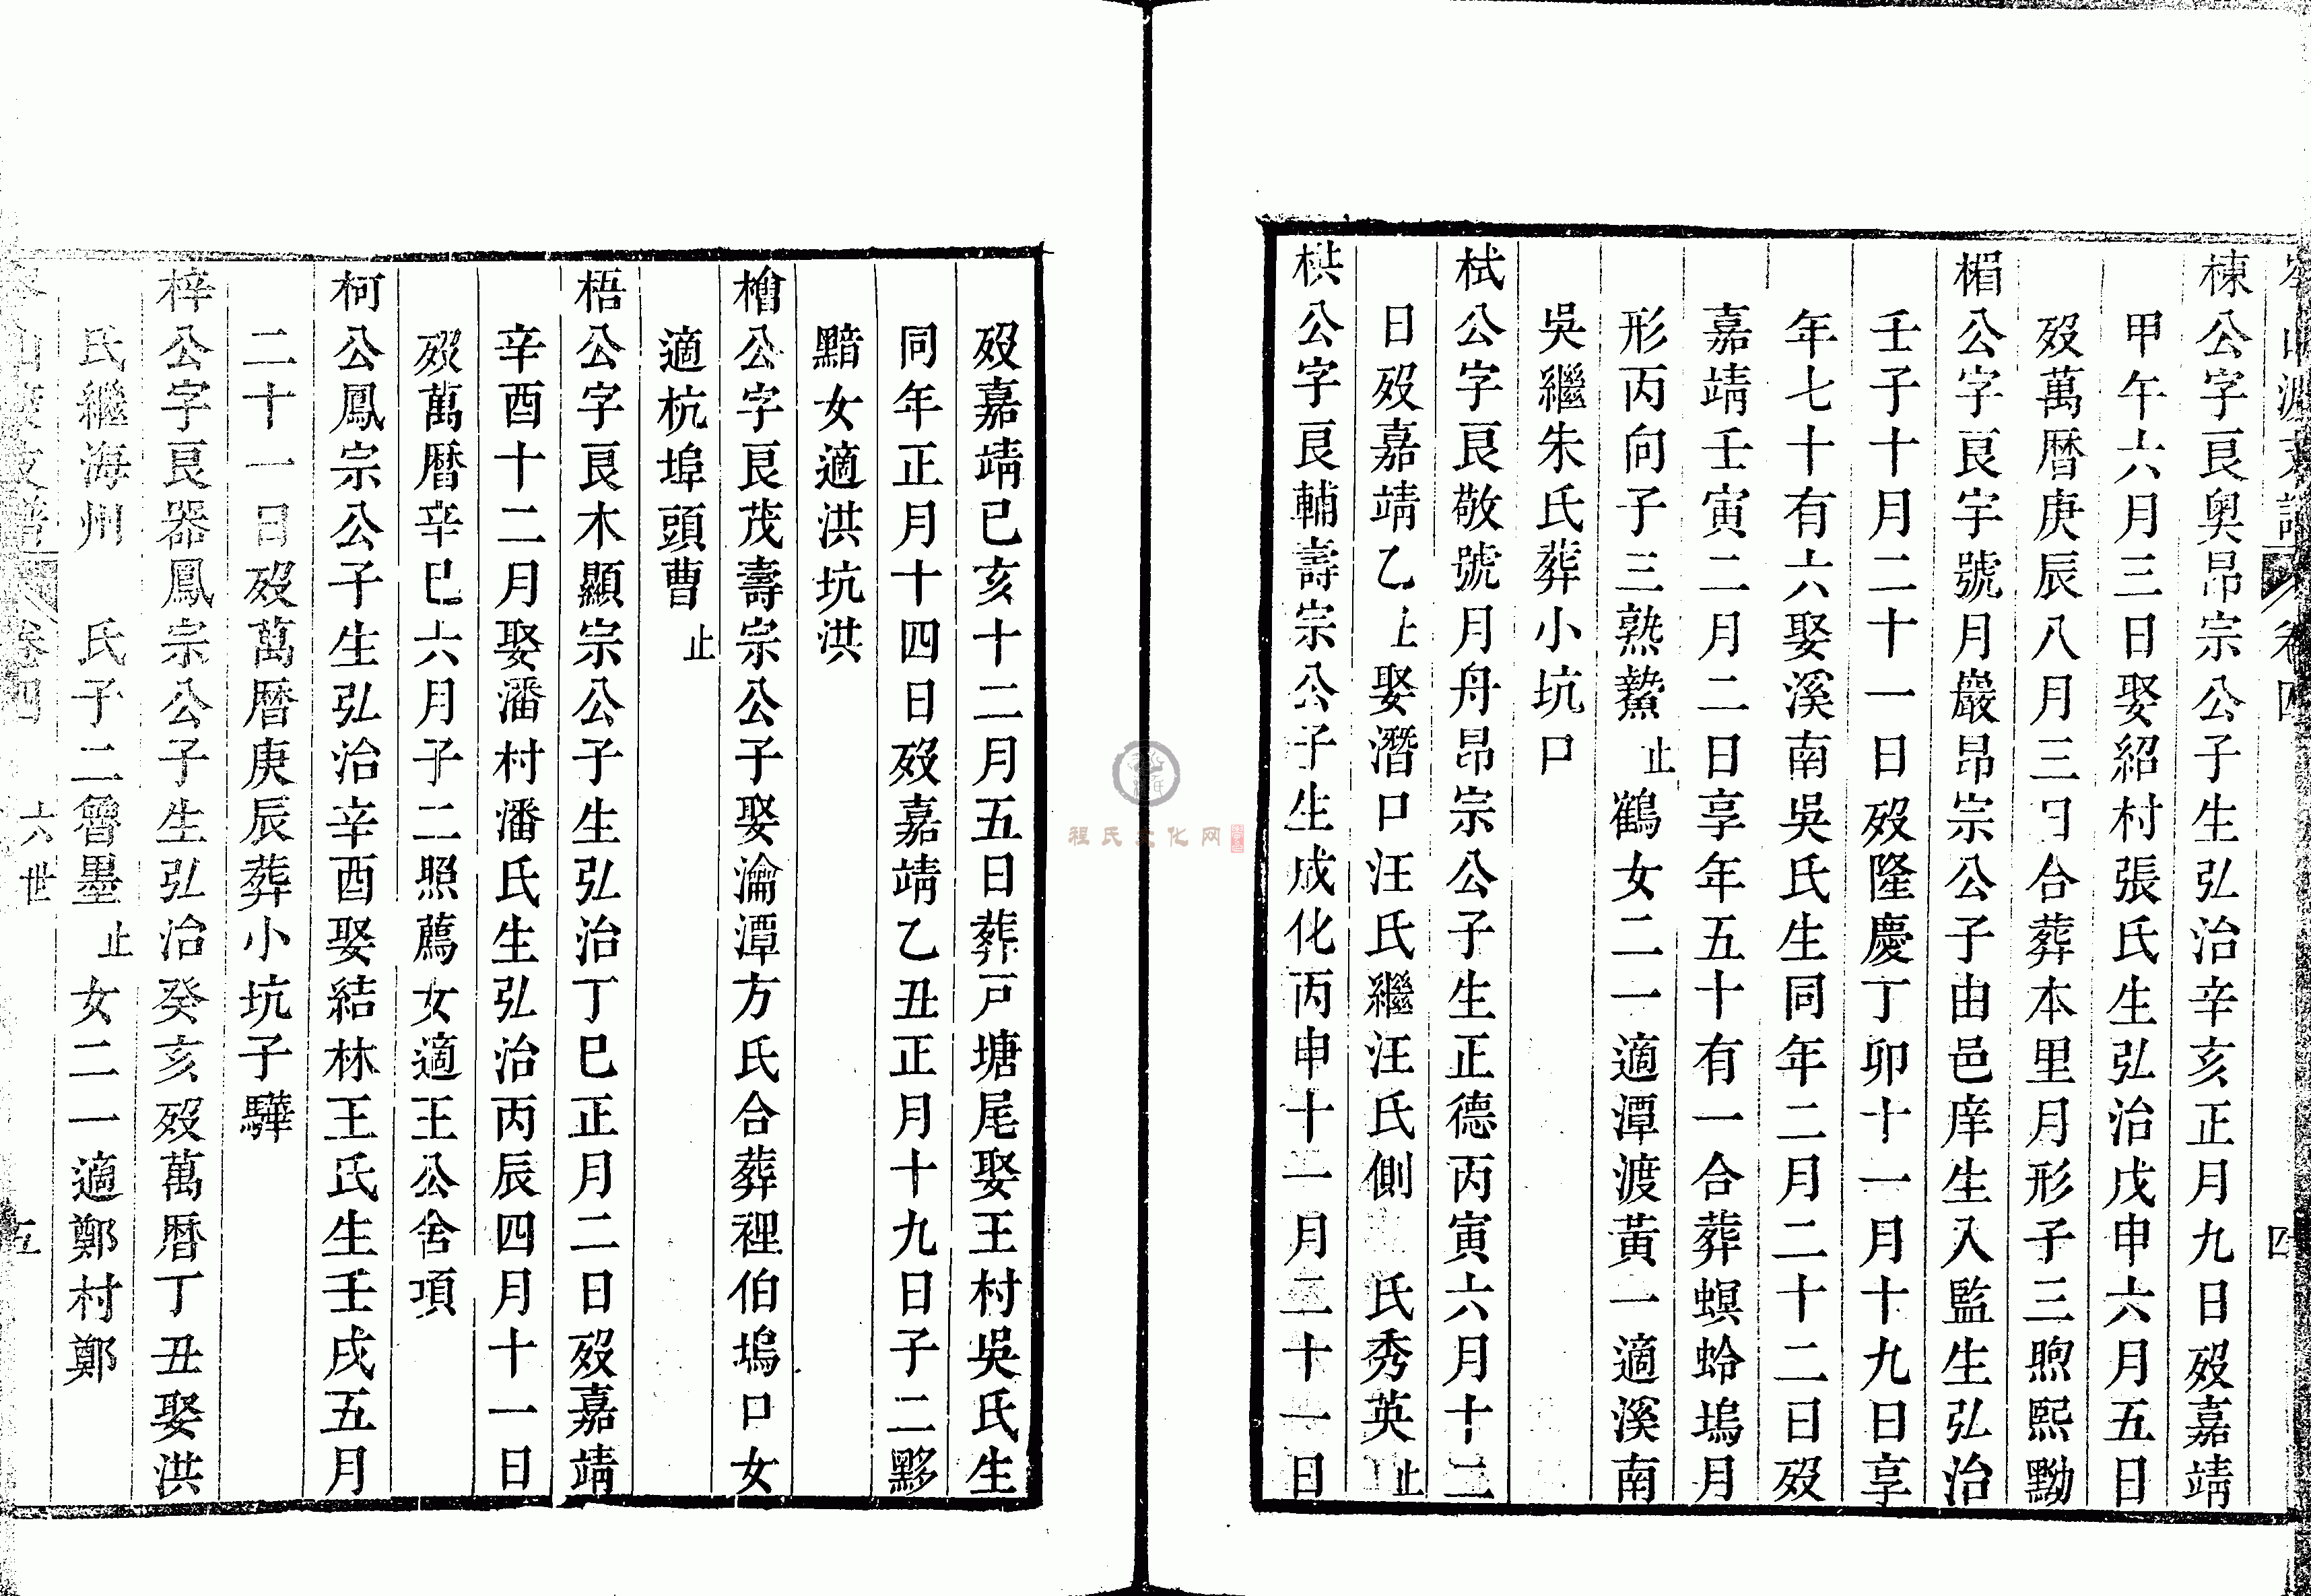 棟公字良奧昂宗公子生弘治辛亥正月九日歿嘉靖
甲午六月三日娶紹村張氏生弘治戊申六月五日
歿萬曆庚辰八月三日合葬本里月形子三煦熙黝
楣公字良宇號月巖昂宗公子由邑庠生入監生弘治
壬子十月二十一日歿隆慶丁卯十一月十九日享
年七十有六娶溪南吳氏生同年二月二十二日歿
嘉靖壬寅二月二日享年五十有一合葬螟蛉塢月
形丙向子三熟鰲止鶴女二一適潭渡黃一適溪南
吳繼朱氏葬小坑口
栻公字良敬號月舟昂宗公子生正德丙寅六月十二
日歿嘉靖乙上娶潛口汪氏繼汪氏側 氏秀英止
栱公字良輔壽宗公子生成化丙申十一月二十一日
歿嘉靖已亥十二月五日葬戸塘尾娶王村吳氏生
同年正月十四日歿嘉靖乙丑正月十九日子二黟
黯女適洪坑洪
檜公字良茂壽宗公子娶瀹潭方氏合葬裡伯塢口女
適杭埠頭曹止
梧公字良木顯宗公子生弘治丁巳正月二日歿嘉靖
辛酉十二月娶潘村潘氏生弘治丙辰四月十一日
歿萬曆辛巳六月子二照薦女適王公舍項
柯公鳳宗公子生弘治辛酉娶結林王氏生壬戌五月
二十一日歿萬曆庚辰葬小坑子驊
梓公字良器鳳宗公子生弘治癸亥歿萬曆丁丑娶洪
氏繼海州 氏子二魯墨止女二一適鄭村鄭
卷四 六世 五
程氏文化网